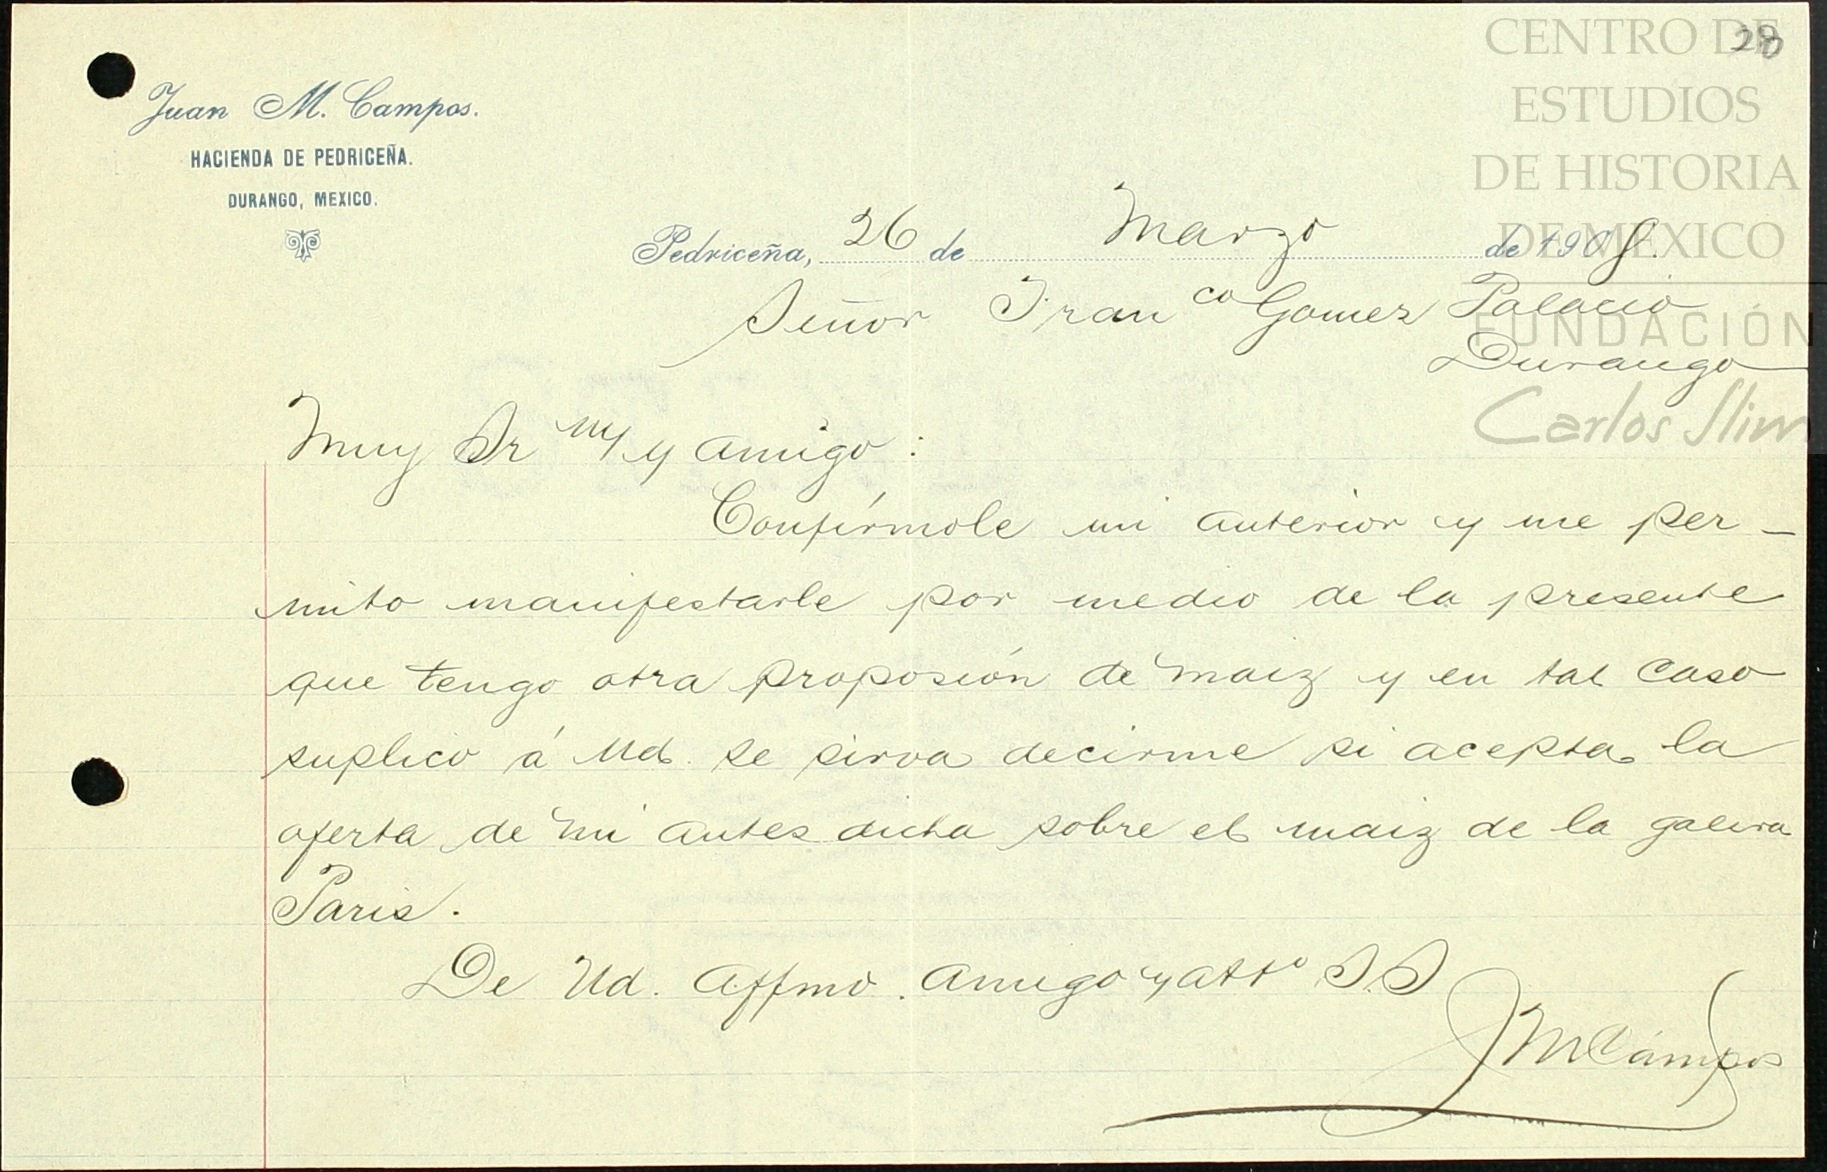 28
CENTRO DE
ESTUDIOS
DE HISTORIA
DE MEXICO
FUNDACIÓN
Carlos Slim
Juan M. Campos.
HACIENDA DE PEDRICEÑA.
DURANGO, MEXICO.
Pedriceña, 26 de Marzo de 1908.
Señor Franco Gomez Palacio
Durango
Muy Sr my y amigo:
Confírmole mi anterior y me per-
mito manifestarle por medio de la presente
que tengo otra proposión de maiz y en tal caso
suplico á Ud. se sirva decirme si acepta la
oferta de mi antes dicha sobre el maiz de la galera
Paris.
De Ud. Affmo. amigo y atto S S
JMCámpos